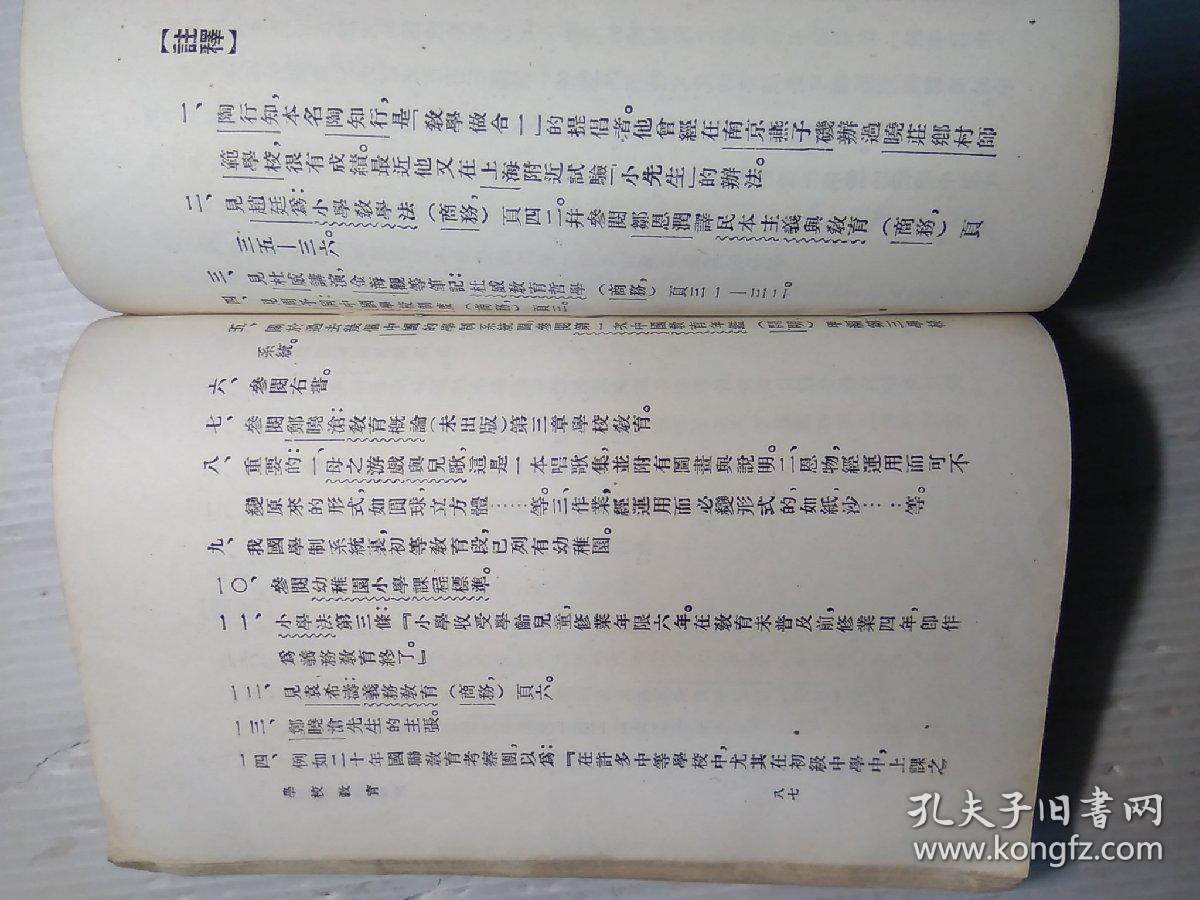 【註釋】
一、陶行知，本名陶知行，是「教學做合一」的提倡者。他曾經在南京燕子磯辦過曉莊鄉村師
範學校，很有成績。最近他又在上海附近試驗「小先生」的辦法。
二、見趙廷爲：小學教學法（商務）頁四二，幷參閱鄒恩潤譯民本主義與教育（商務），頁
三五—三六。
三、見杜威講演，金海觀等筆記：杜威教育哲學（商務），頁三一—三二。
四、
五、
系統。
六、參閱右書。
七、參閱鄭曉滄：教育槪論（未出版）第三章學校教育。
八、重要的：一、母之游戲與兒歌，這是一本唱歌集並附有圖畫與說明。二、恩物，經運用而可不
變原來的形式，如圓球，立方體……等。三、作業，經運用而必變形式的，如紙，沙……等。
九、我國學制系統裏，初等教育段已列有幼稚園。
一〇、參閱幼稚園小學課程標準。
一一、小學法第三條：『小學收受學齡兒童，修業年限六年。在教育未普及前，修業四年，卽作
爲義務教育終了。』
一二、見袁希濤：義務教育（商務），頁六。
一三、鄭曉滄先生的主張。
一四、例如二十年國聯教育考察團，以爲：『在許多中等學校中，尤其在初級中學中，上課之
學校教育
八七
孔夫子旧书网
www.kongfz.com